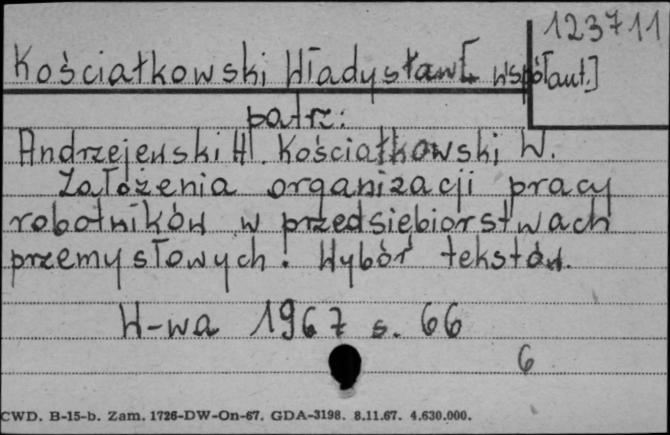 123711
Kościałkowski Władysław [współaut.]
patrz:
Andrzejewski H. Kościałkowski W.
Założenia organizacji pracy
robotników w przedsiębiorstwach
przemysłowych. Wybór tekstów.
W-wa 1967 s. 66
6
CWD. B-15-b. Zam. 1726-DW-On-67. GDA-3198. 8.11.67. 4.630.000.